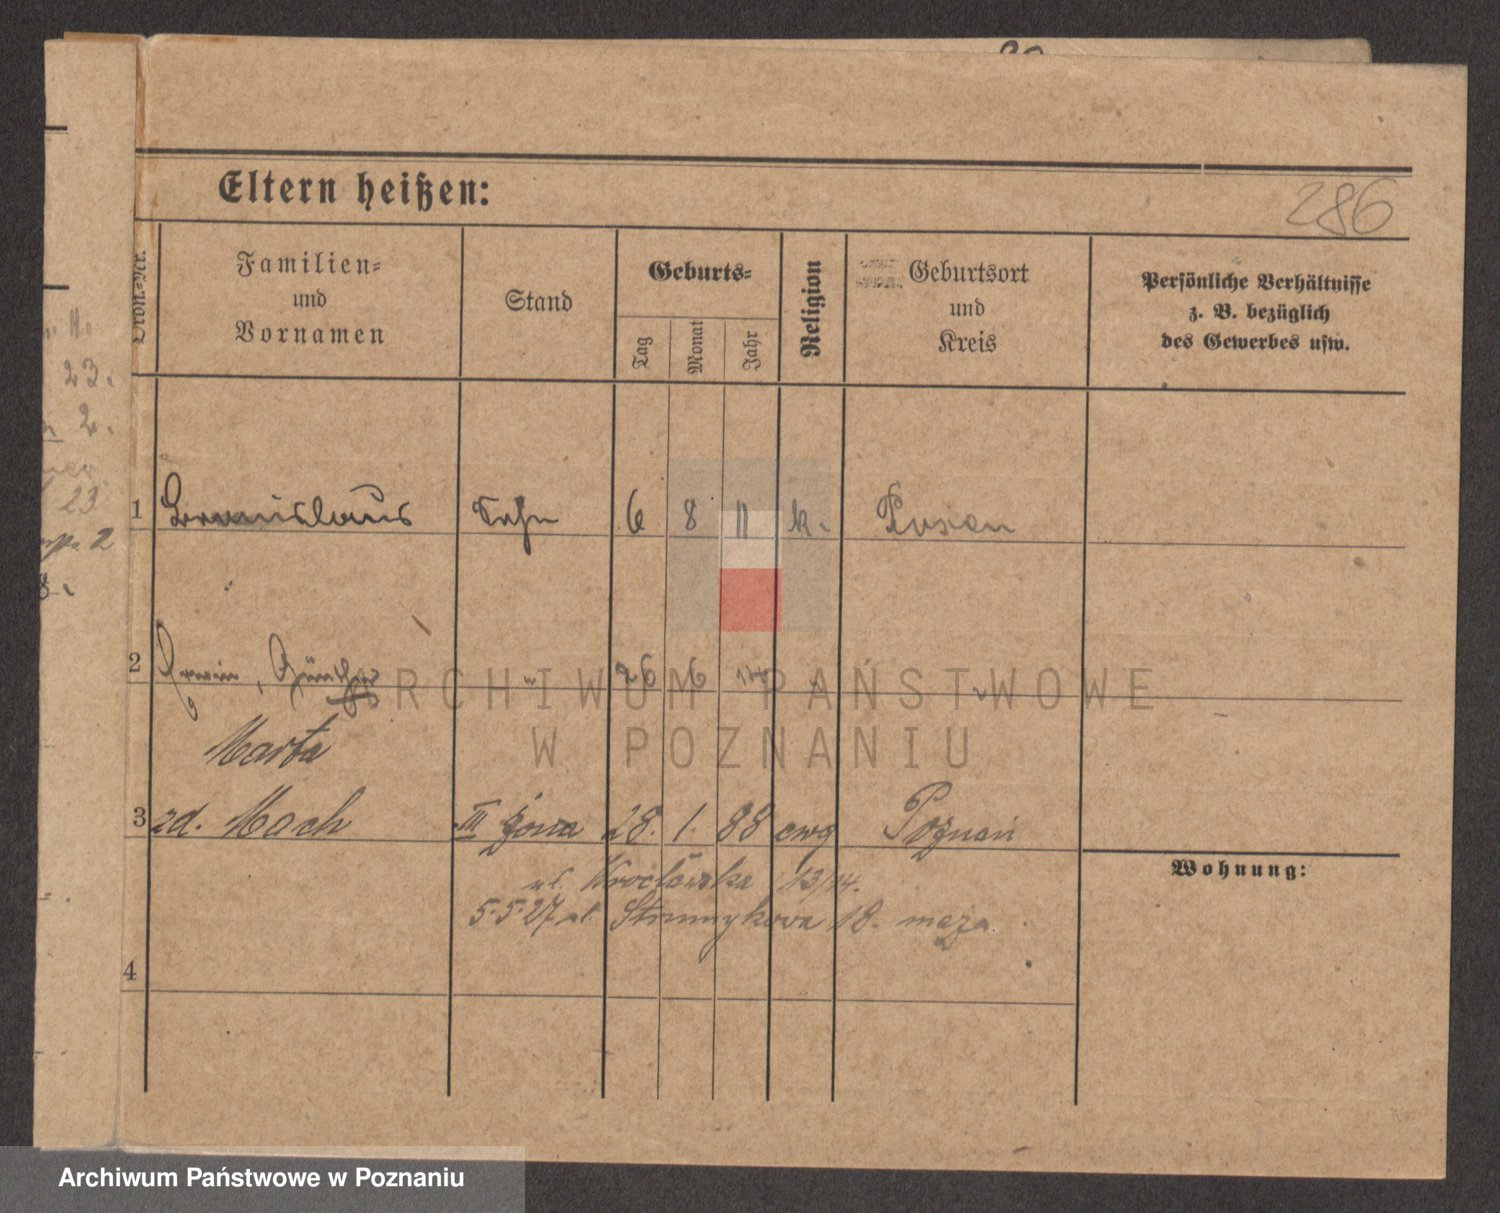 Eltern heißen:
286
Ordn.=Nr.
Familien=
und
Vornamen
Stand
Geburts=
Tag
Monat
Jahr
Religion
Geburtsort
und
Kreis
Persönliche Verhältnisse
z. B. bezüglich
des Gewerbes usw.
11.
23.
2.
23
2
8.
1 Bronislaus Sohn 6 8 11 k. Posen
2 Erwin, Günther " 26 6 "
Marta
3 zd. Mach III żona 28. 1. 88 ewg Poznań
ul. Wrocławska 13/14.
5.5.27 ul. 18. męża
Wohnung:
4
ARCHIWUM PAŃSTWOWE
W POZNANIU
Archiwum Państwowe w Poznaniu